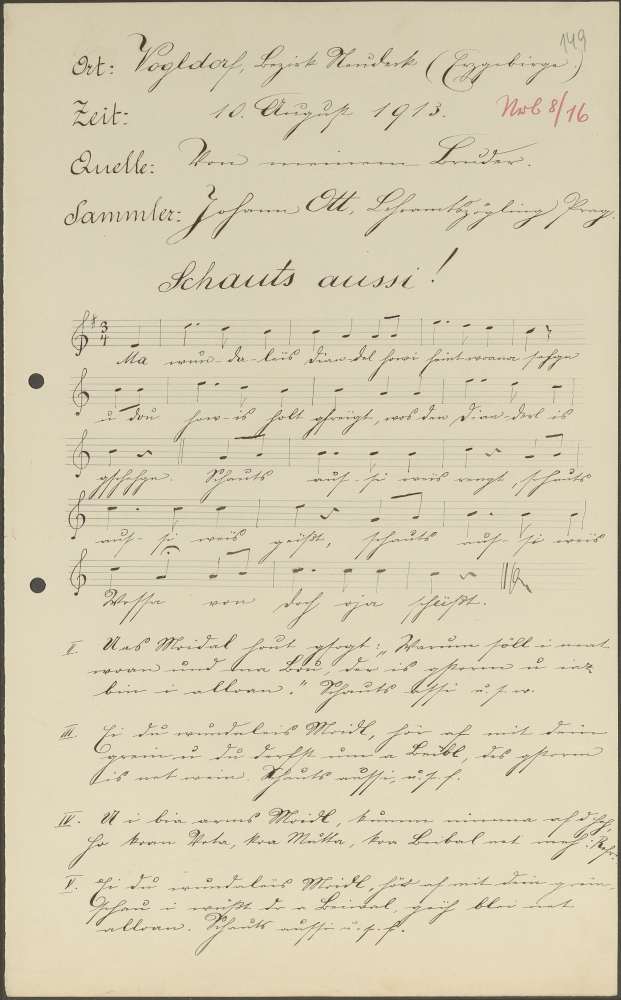 149
Ort: Vogldorf, Bezirk Neudeck (Erzgebirge.)
Zeit: 10. August 1913. Nrb 8/16
Quelle: Von meinem Bruder.
Sammler: Johann Ott, Lehramtszögling Prag.
Schauts aussi!
3
4
Ma wun-da-leis Dian-del howi heint woana
u dou how-is holt gfreigt, wos den Dian-derl is
gschehgn. Schauts auf-si weis rengt, schauts
auf-si weis geißt, schauts auf-si weis
Wossa von Doch oja schüßt.
II. Uas Moidal hout gsogt: „Warum söll i net
woan und ma Bou, der is gstorm u
bin i alloan." Schauts assi u. s. w.
III. Ei du wundaleis Moidl, hör af mit dein
grein u du derfst um a Beibl, des gstorm
is net wein. Schauts aussi, u. s. f.
IV. U i bin arms Moidl, kumm nimma af d
Ho koan Vota, koa Mutta, koa Beibal net meh
V. Ei du wundaleis Moidl, hör af mit dein grein,
Schau i wüßt dr a Beibal, net
alloan. Schauts aussi u. s. f.